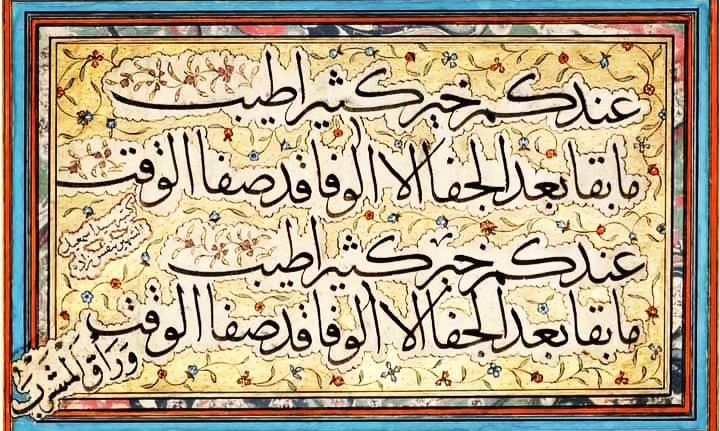 عندكم خير كثير اطيب
ما بقا بعد الجفا الا الوفا قد صفا الوقت
عندكم خير كثير اطيب
ما بقا بعد الجفا الا الوفا قد صفا الوقت
وراق المشرب